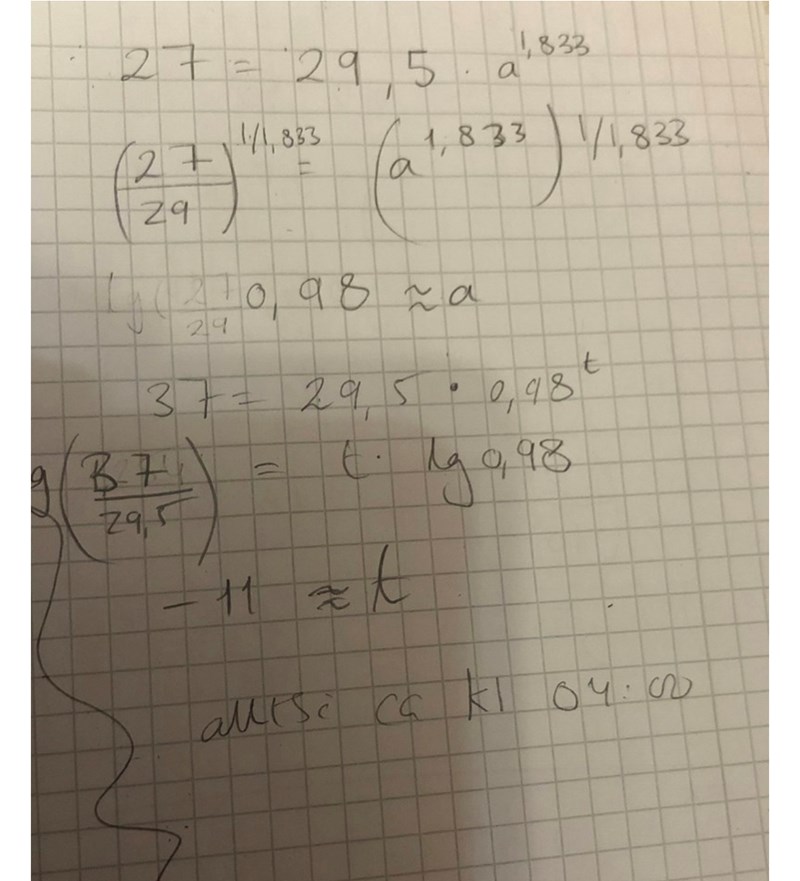 27 = 29,5 · a^1,833
(27/29)^1/1,833 = (a^1,833)^1/1,833
lg(27/29 0,98 ≈ a
37 = 29,5 · 0,98^t
lg(37/29,5) = t · lg 0,98
-11 ≈ t
alltså ca kl 04:00